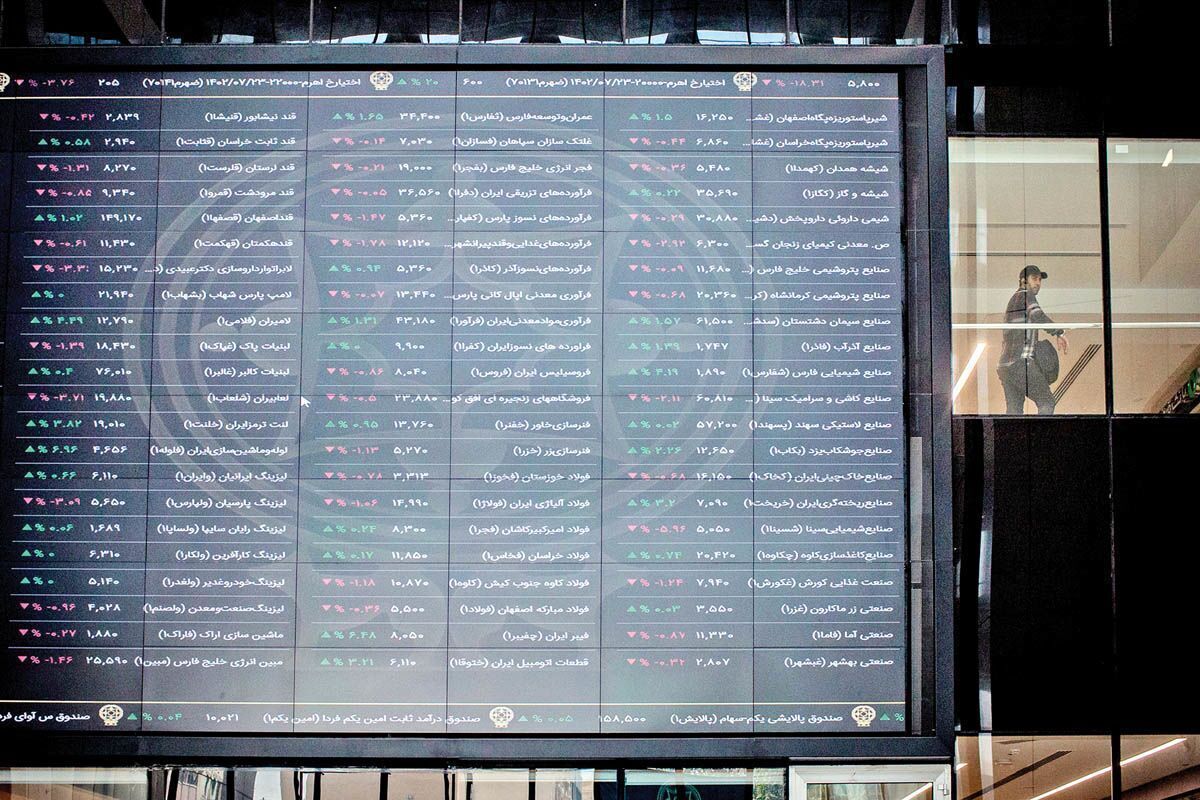 ۵,۸۰۰ ▼ % -۱۸.۳۱ اختیارخ اهرم-۲۰۰۰۰-۱۴۰۲/۰۷/۲۳ (ضهرم۷۰۱۳۱) ۶۰۰ ▲ % ۲۰ اختیارخ اهرم-۲۲۰۰۰-۱۴۰۲/۰۷/۲۳ (ضهرم۷۰۱۴۱) ۲۰۵ ▼ % -۳.۷۶
شیرپاستوریزه‌پگاه‌اصفهان (غش... ۱۶,۲۵۰ ▲ % ۱.۵
شیرپاستوریزه‌پگاه‌خراسان (غشا... ۶,۸۶۰ ▼ % -۰.۴۴
شیشه‌ همدان‌ (کهمدا۱) ۵,۴۸۰ ▼ % -۰.۳۶
شیشه‌ و گاز (کگاز۱) ۳۵,۶۹۰ ▲ % ۰.۲۲
شیمی‌ داروئی‌ داروپخش‌ (دشی... ۳۰,۸۸۰ ▼ % -۰.۲۹
ص. معدنی کیمیای زنجان گس... ۶,۳۰۰ ▼ % -۲.۹۲
صنایع پتروشیمی خلیج فارس (... ۱۱,۶۸۰ ▼ % -۰.۰۹
صنایع پتروشیمی کرمانشاه (کر... ۲۰,۳۶۰ ▼ % -۰.۶۸
صنایع سیمان دشتستان (سدش... ۶۱,۵۰۰ ▲ % ۱.۵۷
صنایع‌ آذرآب‌ (فاذر۱) ۱,۷۴۷ ▲ % ۱.۳۹
صنایع‌ شیمیایی‌ فارس‌ (شفارس۱) ۱,۸۹۰ ▲ % ۴.۱۹
صنایع‌ کاشی‌ و سرامیک‌ سینا (... ۶۰,۸۱۰ ▼ % -۲.۱۱
صنایع‌ لاستیکی‌ سهند (پسهند۱) ۵۷,۲۰۰ ▲ % ۰.۰۲
صنایع‌جوشکاب‌یزد (بکاب۱) ۱۲,۶۵۰ ▲ % ۲.۲۶
صنایع‌خاک‌چینی‌ایران‌ (کخاک۱) ۱۶,۱۵۰ ▼ % -۰.۶۸
صنایع‌ریخته‌گری‌ایران‌ (خریخت۱) ۷,۰۹۰ ▲ % ۳.۲
صنایع‌شیمیایی‌سینا (شسینا۱) ۵,۰۵۰ ▼ % -۵.۹۶
صنایع‌کاغذسازی‌کاوه‌ (چکاوه۱) ۲۰,۴۲۰ ▲ % ۰.۷۴
صنعت غذایی کورش (غکورش۱) ۷,۹۴۰ ▼ % -۱.۲۴
صنعتی زر ماکارون (غزر۱) ۳,۵۵۰ ▲ % ۰.۰۳
صنعتی‌ آما (فاما۱) ۱۱,۳۳۰ ▼ % -۰.۸۷
صنعتی‌ بهشهر (غبشهر۱) ۲,۸۰۷ ▼ % -۰.۳۲
عمران‌وتوسعه‌فارس‌ (ثفارس۱) ۳۴,۴۰۰ ▲ % ۱.۶۵
غلتک سازان سپاهان (فسازان۱) ۷,۰۳۰ ▼ % -۰.۱۴
فجر انرژی خلیج فارس (بفجر۱) ۱۹,۰۰۰ ▼ % -۰.۲۱
فرآورده‌های‌ تزریقی‌ ایران‌ (دفرا۱) ۳۶,۵۶۰ ▼ % -۰.۰۵
فرآورده‌های‌ نسوز پارس‌ (کفپار... ۵,۳۶۰ ▼ % -۱.۴۷
فرآورده‌های‌غذایی‌وقندپیرانشهر... ۱۲,۱۲۰ ▼ % -۱.۷۸
فرآورده‌های‌نسوزآذر (کاذر۱) ۵,۳۶۰ ▲ % ۰.۹۴
فرآوری معدنی اپال کانی پارس... ۱۳,۴۴۰ ▼ % -۰.۰۷
فرآوری‌موادمعدنی‌ایران‌ (فرآور۱) ۴۳,۱۸۰ ▲ % ۱.۳۱
فراورده‌ های‌ نسوزایران‌ (کفرا۱) ۹,۹۰۰ ▲ % ۰
فروسیلیس‌ ایران‌ (فروس۱) ۸,۰۴۰ ▼ % -۰.۸۶
فروشگاههای زنجیره ای افق کو... ۲۳,۸۸۰ ▼ % -۰.۵
فنرسازی‌خاور (خفنر۱) ۱۳,۷۶۰ ▲ % ۰.۹۵
فنرسازی‌زر (خزر۱) ۵,۲۷۰ ▼ % -۱.۱۳
فولاد خوزستان (فخوز۱) ۳,۳۱۳ ▼ % -۰.۷۸
فولاد آلیاژی ایران (فولاژ۱) ۱۴,۹۹۰ ▼ % -۱.۰۶
فولاد امیرکبیرکاشان (فجر۱) ۸,۳۰۰ ▲ % ۰.۲۴
فولاد خراسان (فخاس۱) ۱۱,۸۵۰ ▲ % ۰.۱۷
فولاد کاوه جنوب کیش (کاوه۱) ۱۰,۸۷۰ ▼ % -۱.۱۸
فولاد مبارکه اصفهان (فولاد۱) ۵,۵۰۰ ▼ % -۰.۳۶
فیبر ایران‌ (چفیبر۱) ۸,۰۵۰ ▲ % ۶.۴۸
قطعات‌ اتومبیل‌ ایران‌ (ختوقا۱) ۶,۱۱۰ ▲ % ۳.۲۱
قند نیشابور (قنیشا۱) ۲,۸۳۹ ▼ % -۰.۴۲
قند ثابت‌ خراسان‌ (قثابت۱) ۲,۹۴۰ ▲ % ۰.۵۸
قند لرستان‌ (قلرست۱) ۸,۲۷۰ ▼ % -۱.۳۱
قند مرودشت‌ (قمرو۱) ۹,۳۴۰ ▼ % -۰.۸۵
قنداصفهان‌ (قصفها۱) ۱۴۹,۱۷۰ ▲ % ۱.۰۲
قندهکمتان‌ (قهکمت۱) ۱۱,۴۳۰ ▼ % -۰.۶۱
لابراتوارداروسازی‌ دکترعبیدی‌ (د... ۱۵,۲۳۰ ▼ % -۳.۳
لامپ‌ پارس‌ شهاب‌ (بشهاب۱) ۲۱,۹۴۰ ▲ % ۰
لامیران‌ (فلامی۱) ۱۲,۷۹۰ ▲ % ۴.۴۹
لبنیات‌ پاک‌ (غپاک۱) ۱۸,۴۳۰ ▼ % -۱.۳۹
لبنیات‌ کالبر (غالبر۱) ۷۶,۰۱۰ ▲ % ۰.۴
لعابیران‌ (شلعاب۱) ۱۹,۸۸۰ ▼ % -۳.۷۱
لنت‌ ترمزایران‌ (خلنت۱) ۱۹,۰۱۰ ▲ % ۳.۸۲
لوله‌وماشین‌سازی‌ایران‌ (فلوله۱) ۴,۶۵۶ ▲ % ۶.۹۶
لیزینگ ایرانیان (وایران۱) ۶,۱۱۰ ▲ % ۰.۶۶
لیزینگ پارسیان (ولپارس۱) ۵,۶۵۰ ▼ % -۳.۰۹
لیزینگ رایان سایپا (ولساپا۱) ۱,۶۸۹ ▲ % ۰.۰۶
لیزینگ کارآفرین (ولکار۱) ۶,۳۱۰ ▲ % ۰
لیزینگ‌خودروغدیر (ولغدر۱) ۵,۱۴۰ ▲ % ۰
لیزینگ‌صنعت‌ومعدن‌ (ولصنم۱) ۴,۰۲۸ ▼ % -۰.۹۶
ماشین‌ سازی‌ اراک‌ (فاراک۱) ۱,۸۸۰ ▼ % -۰.۲۷
مبین انرژی خلیج فارس (مبین۱) ۲۵,۵۹۰ ▼ % -۱.۴۶
▲ % صندوق پالایشی یکم-سهام (پالایش۱) ۱۵۸,۵۰۰ ▲ % ۰.۰۵ صندوق درآمد ثابت امین یکم فردا (امین یکم۱) ۱۰,۰۲۱ ▲ % ۰.۰۴ صندوق س آوای فرد